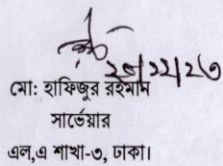 ২৮/১১/২৩
মো: হাফিজুর রহমান
সার্ভেয়ার
এল,এ শাখা-৩, ঢাকা।